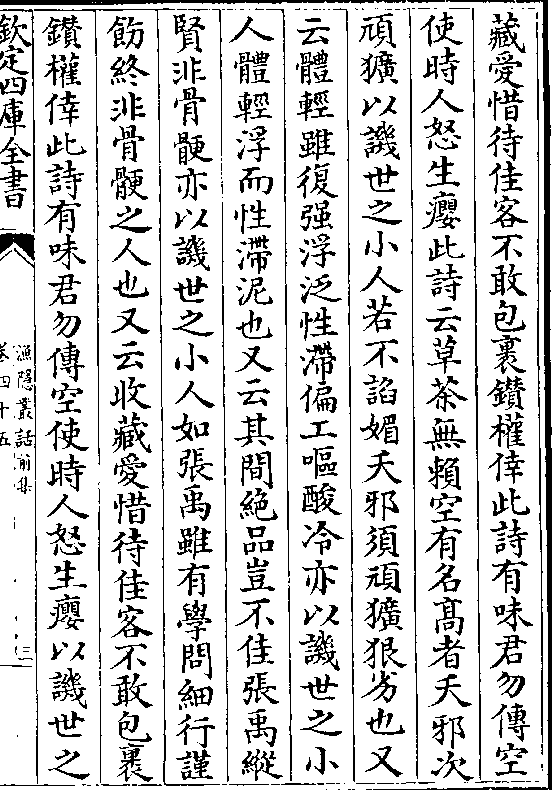 藏愛惜待佳客不敢包裹鑚權倖此詩有味君勿傳空
使時人怒生癭此詩云草茶無賴空有名髙者夭邪次
頑獷以譏世之小人若不諂媚夭邪須頑獷狠劣也又
云體輕雖復强浮泛性滯偏工嘔酸冷亦以譏世之小
人體輕浮而性滯泥也又云其間絶品豈不佳張禹縱
賢非骨骾亦以譏世之小人如張禹雖有學問細行謹
飭終非骨骾之人也又云收藏愛惜待佳客不敢包裹
鑚權倖此詩有味君勿傳空使時人怒生癭以譏世之
欽定四庫全書
漁隱叢話前集
卷四十五
三